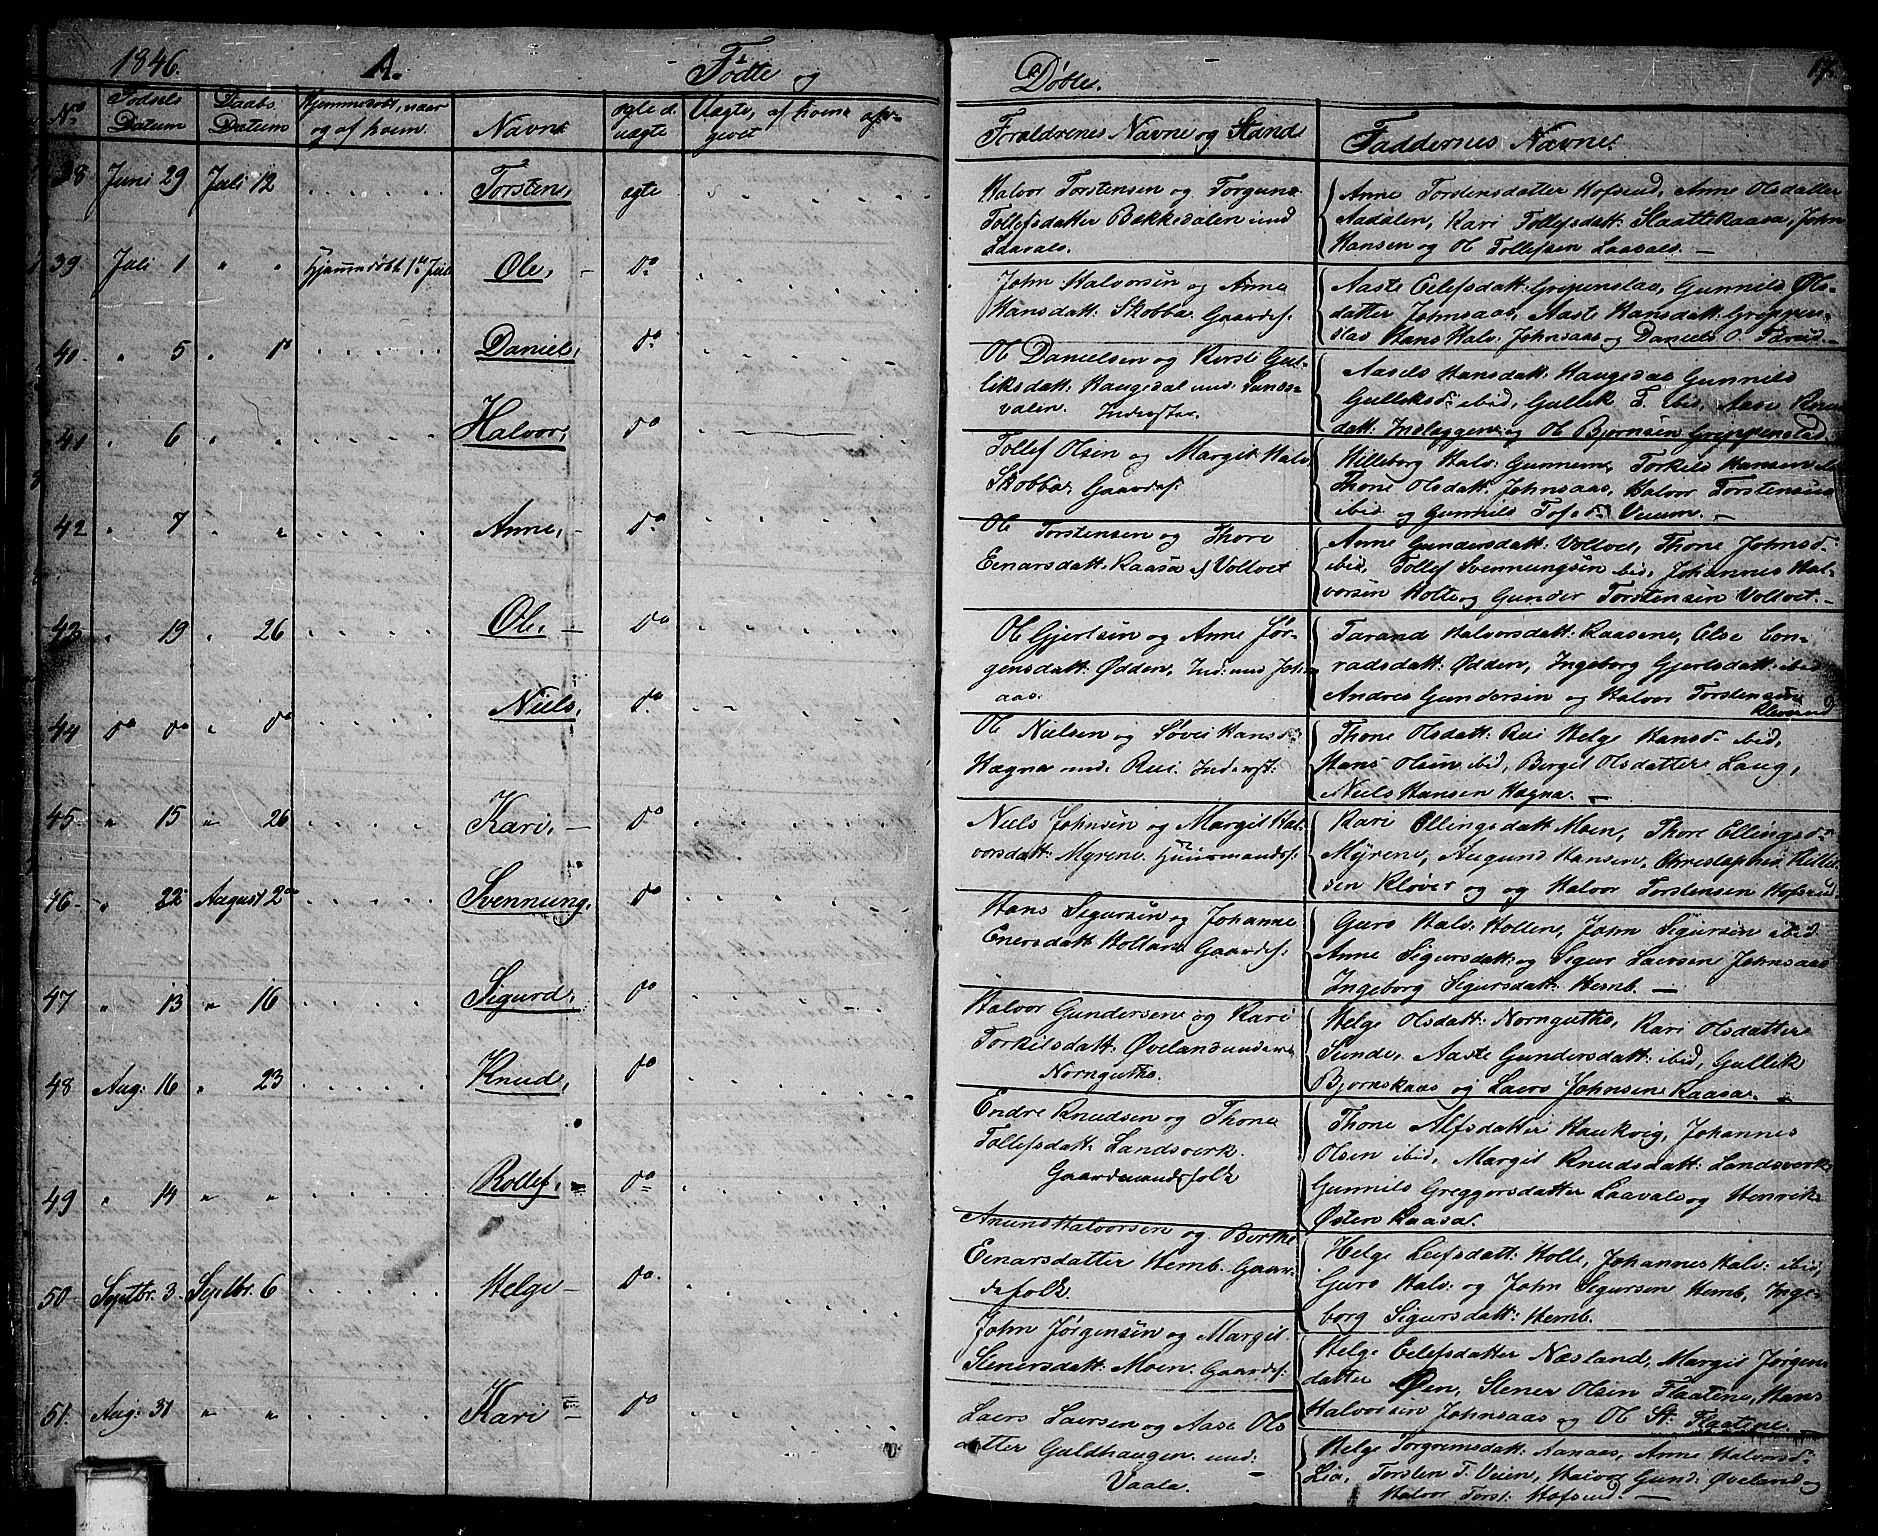 1846. A. Födte og Döbte. 17.
No Fødsels Datum Daabs Datum Hjemmedøbt, naar og af hvem. Navne ægte el. uægte Uægte, af hvem opgivet
Forældrenes Navne og Stand Faddernes Navne.
38 Juni 29 Juli 12 Torsten, ægte
Halvor Torstensen og Torguns
Tollefsdatter Bekkedalen und
Laavals.
Anne Tordensdatter Hofseud, Anne Olsdatter
Aadalen, Kari Tollefsdatt: Slaattekaasa, John
Hansen og Ol Tollefsen Laavals. —
39 Juli 1 " " Hjemmedøbt 1te Juli Ole, do
John Halvorsen og Anne
Hansdatt: Skobba. Gaardsf.
Aaste Eilefsdatt: Gripenslaa, Gunnild Ols-
datter Johnsaas, Aaste Hansdatt: Grippen-
slaa Hans Halv: Johnsaas og Daniels O. Tarud. —
40 " 5 " 12 Daniel, do
Ol Danielsen og Kirsti Gul-
liksdatt: Haugedal und. Sunds-
valen. Inderster.
Aaseld Hansdatt: Haugedal Gunnild
Gulleksd: ibid, Gullek T. ibid, Aase
datt: Inslaggen og Ol Bjørnsen Grippenslad.
41 " 6 " " Halvor, do
Tollef Olsen og Margit Halv.
Skobba. Gaardsf:
Hilleborg Halv: Gunneme, Torkild Hansen
Thone Olsdatt: Johnsaas, Halvor Torstensen
ibid og Gunnild Tofsd: Veum. —
42 " 7 " " Anne, do
Ol Torstensen og Thore
Einarsdatt: Kaasa of Voltvet
Anne Gundersdatt: Voltvet, Thone Johnsd:
ibid, Tollef Svennungsen ibid, Johannes Hal-
vorsen Holte og Gunder Torstensen Voltvet. —
43 " 19 " 26 Ole, do
Ol Gjertsen og Anne Jør-
gensdatt: Ødden. Ind: und John
aas.
Tarand Halvorsdatt: Kaasene, Else Con-
radsdatt: Ødden, Ingeborg Gjertsdatt: ibid
Andres Gundersen og Halvor Torstensen
Kleverud
44 do do " do Niels, do
Ol Nielsen og Søvei Hansd:
Hægna und. Rui. Inderst:
Thone Olsdatt: Rui Helge Hansd: ibid,
Hans Olsen ibid, Birgit Olsdatter Laug,
Niels Hansen Hægna. —
45 " 15 " 26 Kari, do
Niels Johnsen og Margit Hal-
vorsdatt: Myrene. Huusmandsf:
Kari Ellingsdatt Moen, Thore Ellingsd:
Myrene, Augund Hansen, Christopher
sen Kløver og og Halvor Torstensen Hofseud.
46 " 22 August 2den Svennung, do
Hans Sigursen og Johanne
Enersdatt: Hollane. Gaardsf:
Guro Halv: Hollen, John Sigursen ibid
Anne Sigursdatt: og Sigur Laersen Johnsaas
Ingeborg Sigursdatt: Hemb. —
47 " 13 " 16 Sigurd, do
Halvor Gundersen og Kari
Torkilsdatt: Øveland under
Norngutho.
Helge Olsdatt: Norngutho, Kari Olsdatter
Sunde, Aaste Gundersdatt: ibid, Gullik
Bjornskaas og Laers Johnsen Kaasa. —
48 Aug: 16 " 23 Knud, do
Endre Knudsen og Thone
Tollefsdatt: Landsverk.
Gaardmandsfolk
Thone Alfsdatter Haukvig, Johannes
Olsen ibid, Margit Knudsdatt: Landsverk,
Gunnild Greggorsdatter Laavals og Henrik
Østen Kaasa.
49 " 14 " " Rollef, do
Anund Halvorsen og Birthe
Einarsdatter Hemb. Gaar-
defolk.
Helge Leifsdatt: Holte, Johannes Halv: ibid,
Guro Halv: og John Sigursen Hemb, Inge-
borg Sigursdatt: Hemb.
50 Septbr. 3. Septbr. 6 Helge do
John Jørgensen og Margit
Stenersdatt: Moen. Gaardsf:
Helge Eilefsdatter Næsland, Margit Jørgens
datter Øen, Stener Olsen Flaatene, Hans
Halvorsen Johnsaas og Ol St: Flaatene. —
51. Aug: 31 " " Kari do
Laers Laersen og Aase Ols
datter Guldhaugen und:
Vaala. —
Helge Torgrimsdatt: Aanaas, Anne Halvorsd:
Lia, Torsten T. Veien, Halvor Gund: Øveland og
Halvor Torst: Hofseud. —